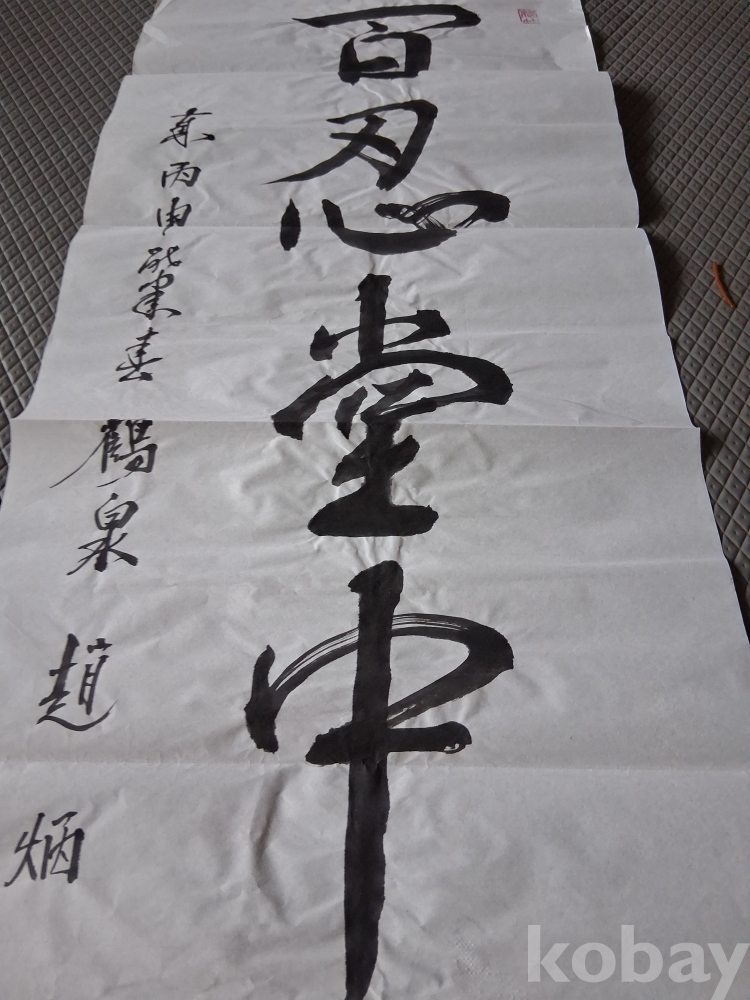 百忍堂中
丙申 春 鶴泉 趙 炳
kobay